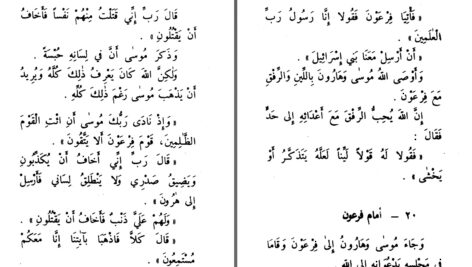 « فَأْتِيَا فِرْعَوْنَ فَقُولَا إِنَّا رَسُولُ رَبِّ
الْعَالَمِينَ » .
« أَنْ أَرْسِلْ مَعَنَا بَنِي إِسْرَائِيلَ » .
وَأَوْصَى اللهُ مُوسَى وَهَارُونَ بِاللِّينِ وَالرِّفْقِ
مَعَ فِرْعَوْنَ .
إِنَّ اللهَ يُحِبُّ الرِّفْقَ مَعَ أَعْدَائِهِ إِلَى حَدٍّ
فَقَالَ :
« فَقُولَا لَهُ قَوْلًا لَيِّنًا لَعَلَّهُ يَتَذَكَّرُ أَوْ
يَخْشَى » .
٢٠ – أمام فرعون
وَجَاءَ مُوسَى وَهَارُونُ إِلَى فِرْعَوْنَ وَقَامَا
فِي مَجْلِسِهِ يَدْعُوَانِهِ إِلَى اللهِ
قَالَ رَبِّ إِنِّي قَتَلْتُ مِنْهُمْ نَفْسًا فَأَخَافُ
أَنْ يَقْتُلُونِ » .
وَذَكَرَ مُوسَى أَنَّ فِي لِسَانِهِ حُبْسَةً .
وَلَكِنَّ اللهَ كَانَ يَعْرِفُ ذَلِكَ كُلَّهُ وَيُرِيدُ
أَنْ يَذْهَبَ مُوسَى رَغْمَ ذَلِكَ كُلِّهِ .
« وَإِذْ نَادَى رَبُّكَ مُوسَى أَنِ ائْتِ الْقَوْمَ
الظَّالِمِينَ، قَوْمَ فِرْعَوْنَ أَلَا يَتَّقُونَ » .
« قَالَ رَبِّ إِنِّي أَخَافُ أَنْ يُكَذِّبُونِ
وَيَضِيقُ صَدْرِي وَلَا يَنْطَلِقُ لِسَانِي فَأَرْسِلْ
إِلَى هَرُونَ » .
« وَلَهُمْ عَلَيَّ ذَنْبٌ فَأَخَافُ أَنْ يَقْتُلُونِ » .
« قَالَ كَلَّا فَاذْهَبَا بِآيَاتِنَا إِنَّا مَعَكُمْ
مُسْتَمِعُونَ » .